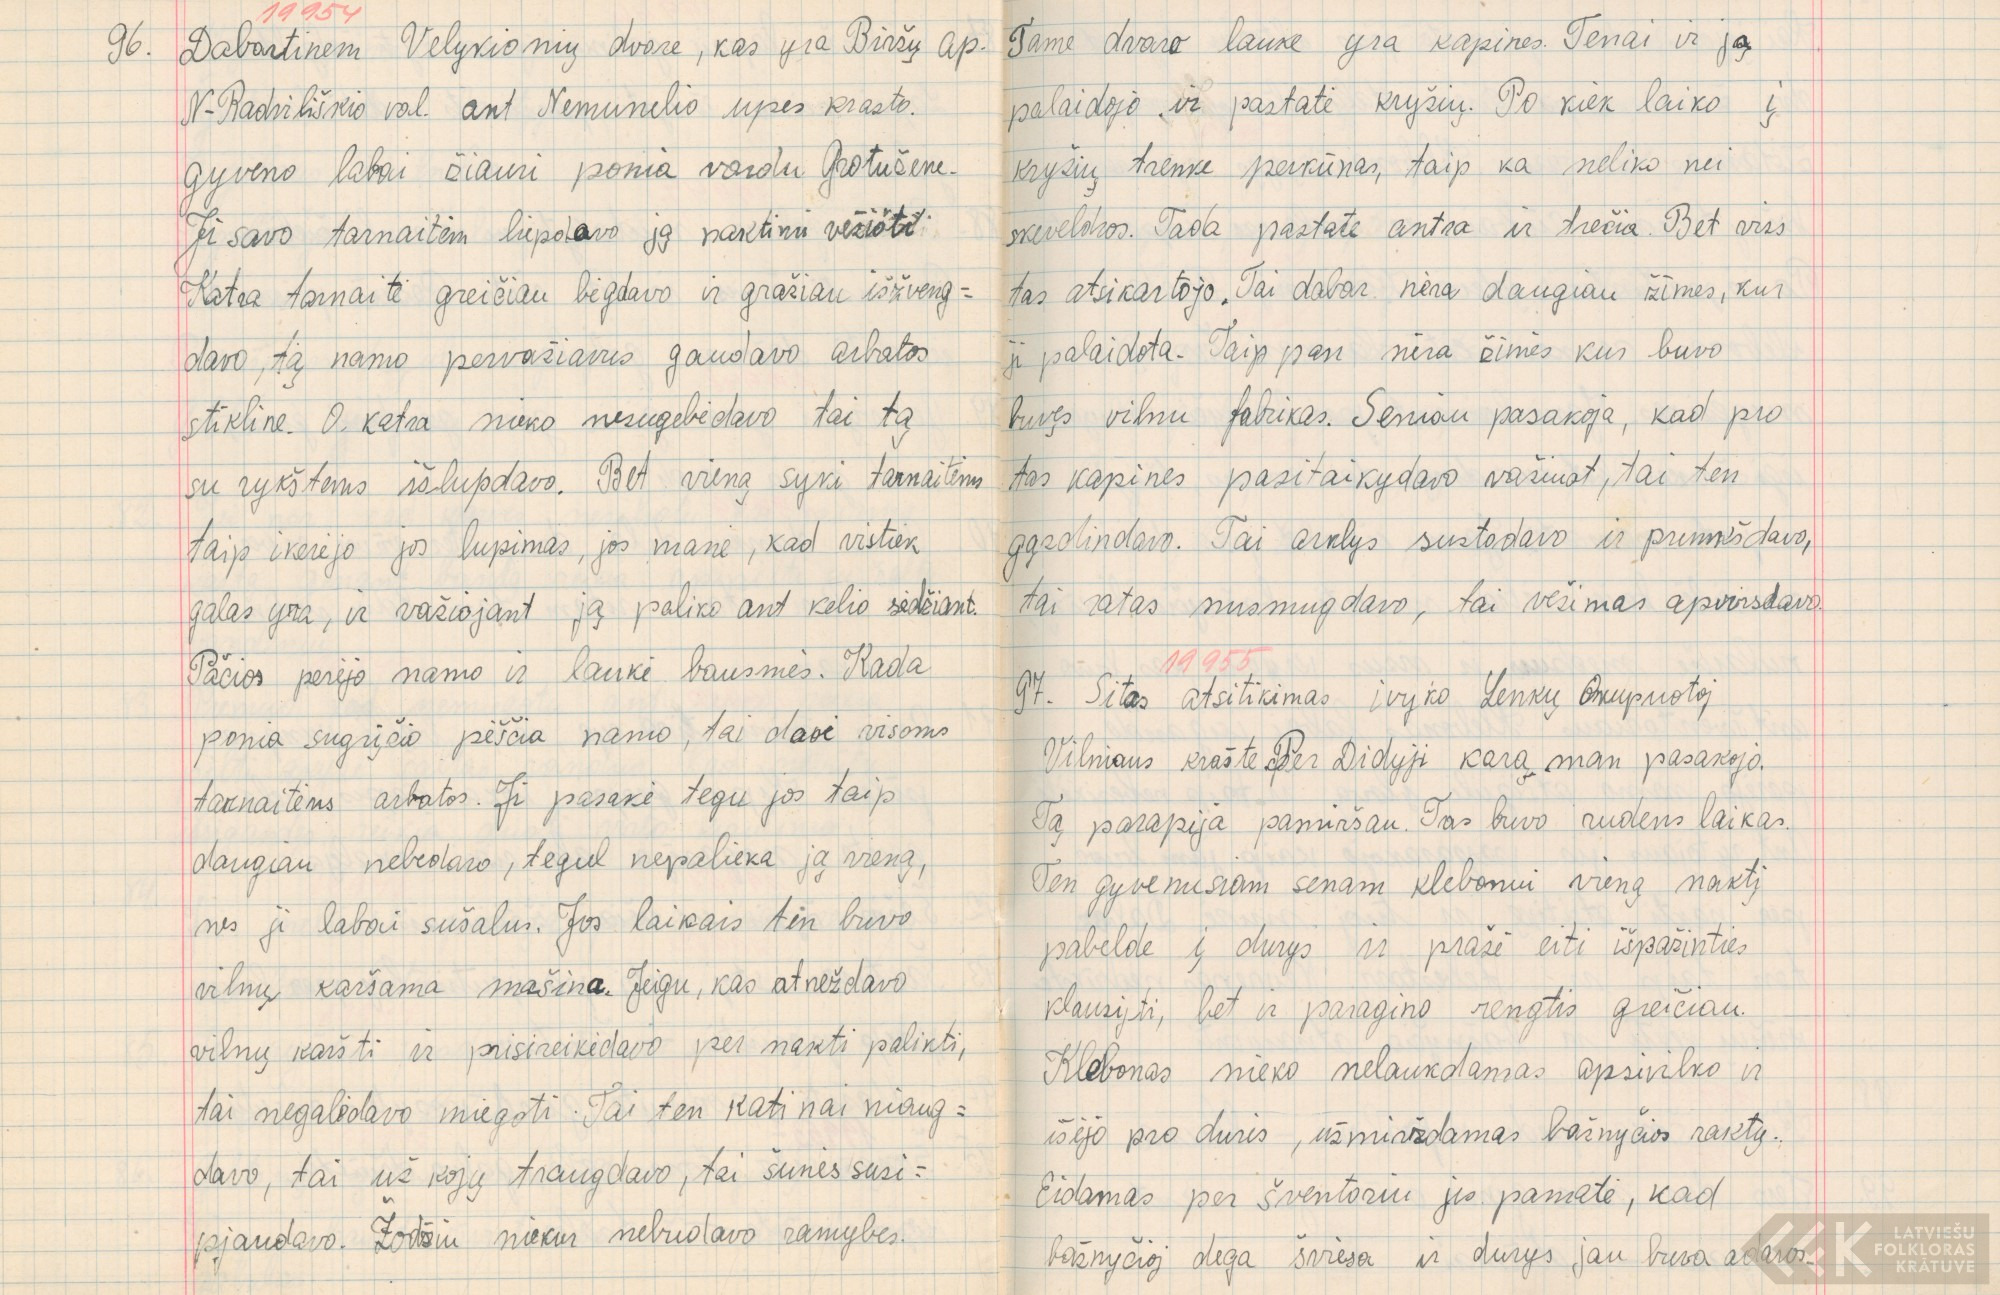 19954
96. Dabartinem Velykionių dvare, kas yra Biržų ap.
N-Radviliškio val. ant Nemunelio upes krasto.
gyveno labai žiauri ponia vardu Grotušene.
Ji savo tarnaitėm liepdavo ją naktimi vėžioti.
Katra tarnaitė greičiau bėgdavo ir gražiau išžveng=
davo, tą namo pervažiavus gaudavo arbatos
stikline. O katra nieko nesugebėdavo tai tą
su rykštems išlupdavo. Bet vieną syki tarnaitėms
taip ikerėjo jos lupimas, jos manė, kad vistiek
galas yra, ir važiojant ją paliko ant kelio sėdžiant.
Pačios perėjo namo ir laukė bausmės. Kada
ponia sugrįčio pėščia namo, tai davė visoms
tarnaitėms arbatos. Ji pasakė tegu jos taip
daugiau nebedaro, tegul nepalieka ją vieną,
nes ji labai sušalus. Jos laikais tėn buvo
vilnų karšama mašina. Jeigu, kas atneždavo
vilnų karšti ir prisireikėdavo per nakti palikti,
tai negalėdavo miegoti. Tai ten katinai niaug=
davo, tai už kojų traugdavo, tai šunės susi=
pjaudavo. Žodžiu niekur nebudavo ramybes.
Tame dvaro lauke yra kapines. Tenai ir ją
palaidojo ir pastatė kryžių. Po kiek laiko į
kryžių trenke perkūnas, taip ka neliko nei
skeveldros. Tada pastate antra ir trečia. Bet viss
tas atsikartojo. Tai dabar nėra daugiau žimes, kur
ji palaidota. Taip pan nėra žimės kus buvo
buvęs vilnu fabrikas. Seniau pasakoja, kad pro
tas kapines pasitaikydavo važiuot, tai ten
gązdindavo. Tai arklys sustodavo ir prunkšdavo,
tai ratas nusmugdavo, tai vėžimas apvirsdavo.
19955
97. Sitas atsitikimas ivyko Lenkų Okupuotoj
Vilniaus krašte. Per Didyji karą man pasakojo.
Tą parapija pamiršau. Tas buvo rudens laikas.
Ten gyvenusiam senam klebonui vieną naktį
pabelde į durys ir prašė eiti išpažinties
klausyti, bet ir paragino rengtis greičiau.
Klebonas nieko nelaukdamas apsivilko ir
išėjo pro duris, užmirždamas bažnyčios raktų.
Eidamas per šventoriu jis pamatė, kad
bažnyčioj dega šviesa ir durys jau buva adaros.
LATVIEŠU
FOLKLORAS
KRĀTUVE